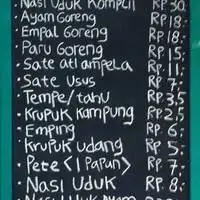 Nasi Uduk Komplit Rp 30
Ayam Goreng Rp 18.
Empal Goreng Rp 18.
Paru Goreng Rp 15.
Sate ati ampela Rp 11.
Sate usus Rp 7.
Tempe/tahu Rp 3,5
Krupuk Kampung Rp 2,5
Emping Rp 6.
Krupuk udang Rp 5.
Pete <1 Papan> Rp 7.
Nasi Uduk Rp 8.